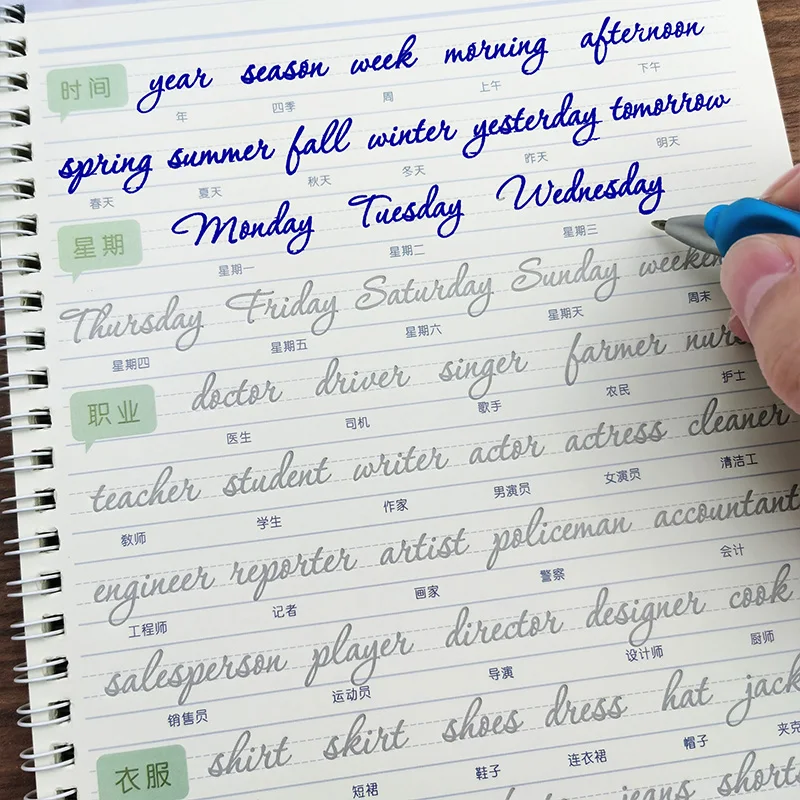 时间 year season week morning afternoon
年 四季 周 上午 下午
spring summer fall winter yesterday tomorrow
春天 夏天 秋天 冬天 昨天 明天
星期 Monday Tuesday Wednesday
星期一 星期二 星期三
Thursday Friday Saturday Sunday
星期四 星期五 星期六 星期天 周末
职业 doctor driver singer farmer
医生 司机 歌手 农民 护士
teacher student writer actor actress cleaner
教师 学生 作家 男演员 女演员 清洁工
engineer reporter artist policeman accountant
工程师 记者 画家 警察 会计
salesperson player director designer cook
销售员 运动员 导演 设计师 厨师
衣服 shirt skirt shoes dress hat jack
短裙 鞋子 连衣裙 帽子 夹克
jeans short